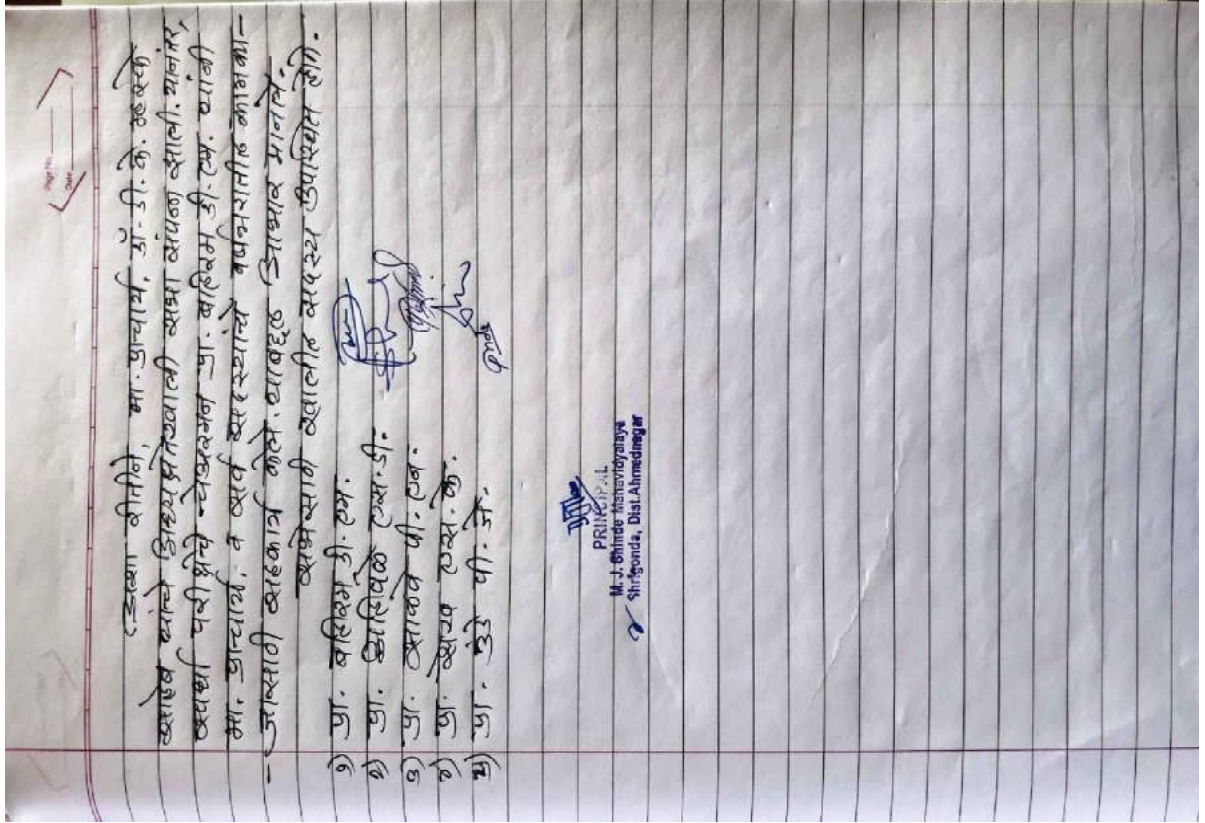 Page No.
Date
अशा रीतीने, मा. प्राचार्य, डॉ. डी. के. म्हस्के
साहेब यांचे अध्यक्षतेखाली सभा संपन्न झाली. यानंतर,
स्पर्धा परीक्षेचे चेअरमन प्रा. बहिरम डी. एम. यांनी
मा. प्राचार्य. व सर्व सदस्यांचे वर्षभरातील कामका-
- जासाठी सहकार्य केले. याबद्दल आभार मानले.
सभेसाठी खालील सदस्य उपस्थित होते.
१) प्रा. बहिरम डी. एम.
२) प्रा. एस. डी.
३) प्रा. साळवे पी. एन.
४) प्रा. एस. के.
५) प्रा. उंडे पी. जे.
PRINCIPAL
M. J. Shinde Mahavidyalaya
Shrigonda, Dist.Ahmednagar